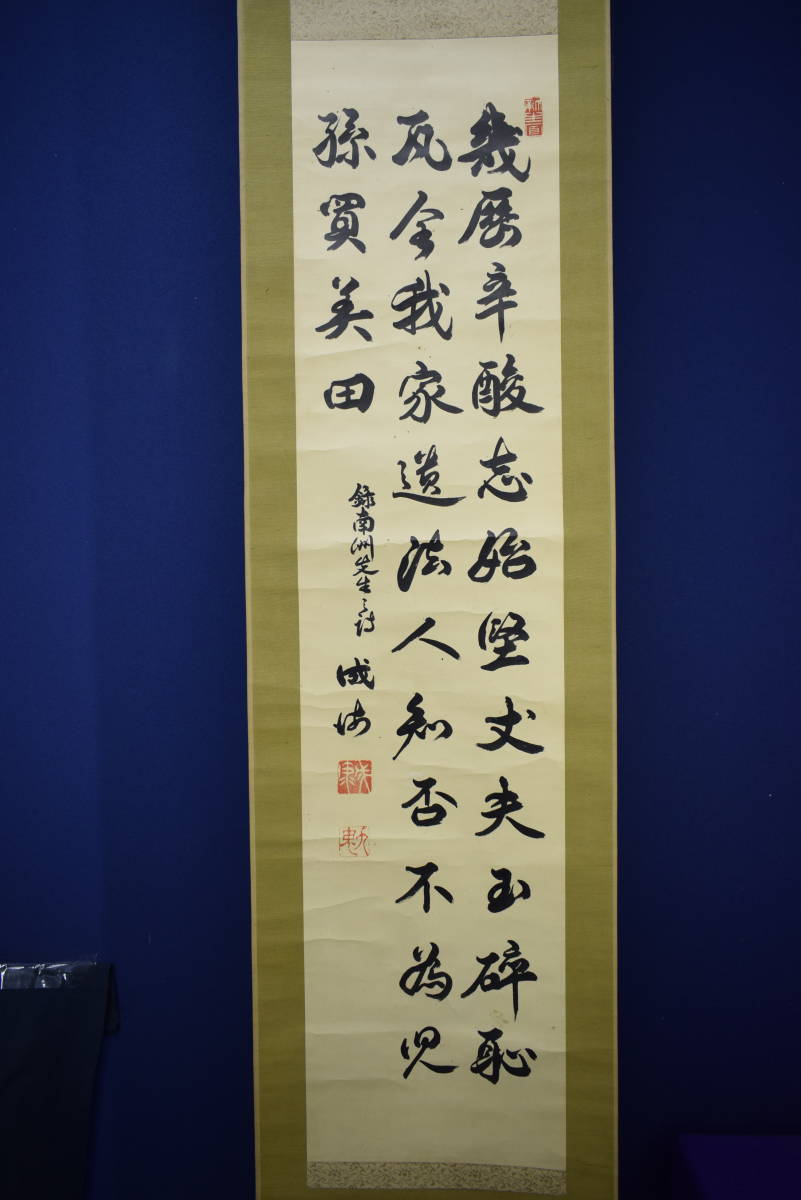 幾歴辛酸志始堅丈夫玉碎恥
瓦全我家遺法人知否不為児
孫買美田
録南洲先生之詩